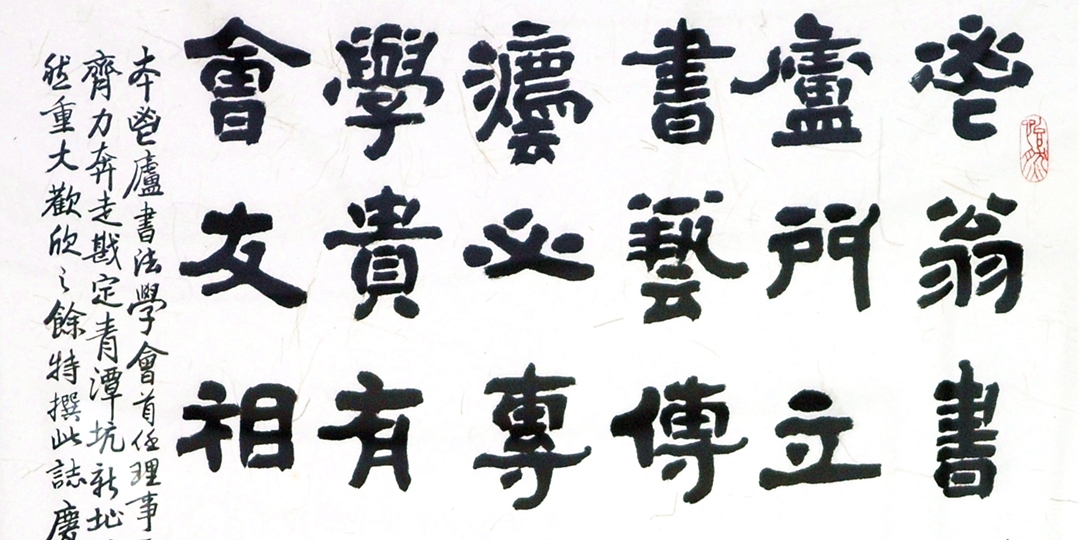 鬯翁書
廬門立
書藝傳
灋必專
學貴有
會友相
本鬯廬書法學會首任理事
齊力奔走戡定青潭坑新址
重大歡欣之餘特撰此誌慶